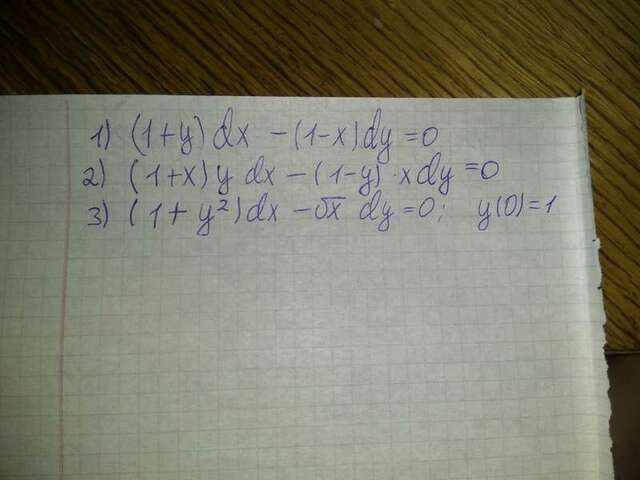 1) (1+y) dx - (1-x)dy =0
2) (1+x) y dx - (1-y) · xdy =0
3) (1+ y²)dx - √x dy =0; y(0)=1